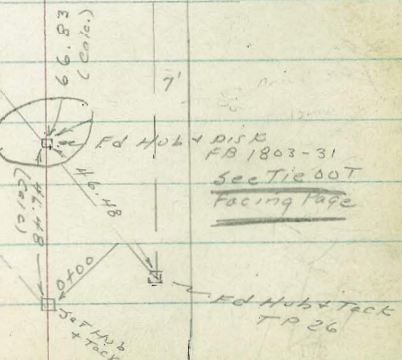 66.83
(Calc.)
7'
Fd Hub & Disk
FB 1803-31
See Tie OUT
Facing Page
46.48
46.48
(Calc)
0+00
Fd Hub & Tack
TP 26
Set Hub
& Tack